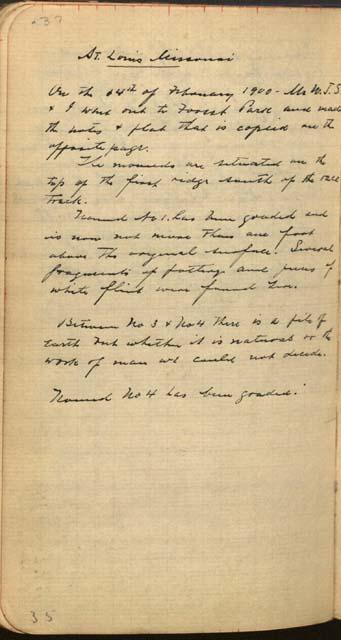 37
St. Louis Missouri
On the 14th of February 1900 - Mr W.J.S
& I went out to Forest Park and made
the notes & plat that is copied on the
opposite page.
The mounds are situated on the
top of the first ridge south of the race
track.
Mound No 1. has been graded and
is now not more than one foot
above the original surface. Several
fragments of pottery and pieces of
white flint were found here.
Between No 3 & No 4 there is a pile of
earth but whether it is natural or the
work of man we could not decide.
Mound No 4 has been graded.
35